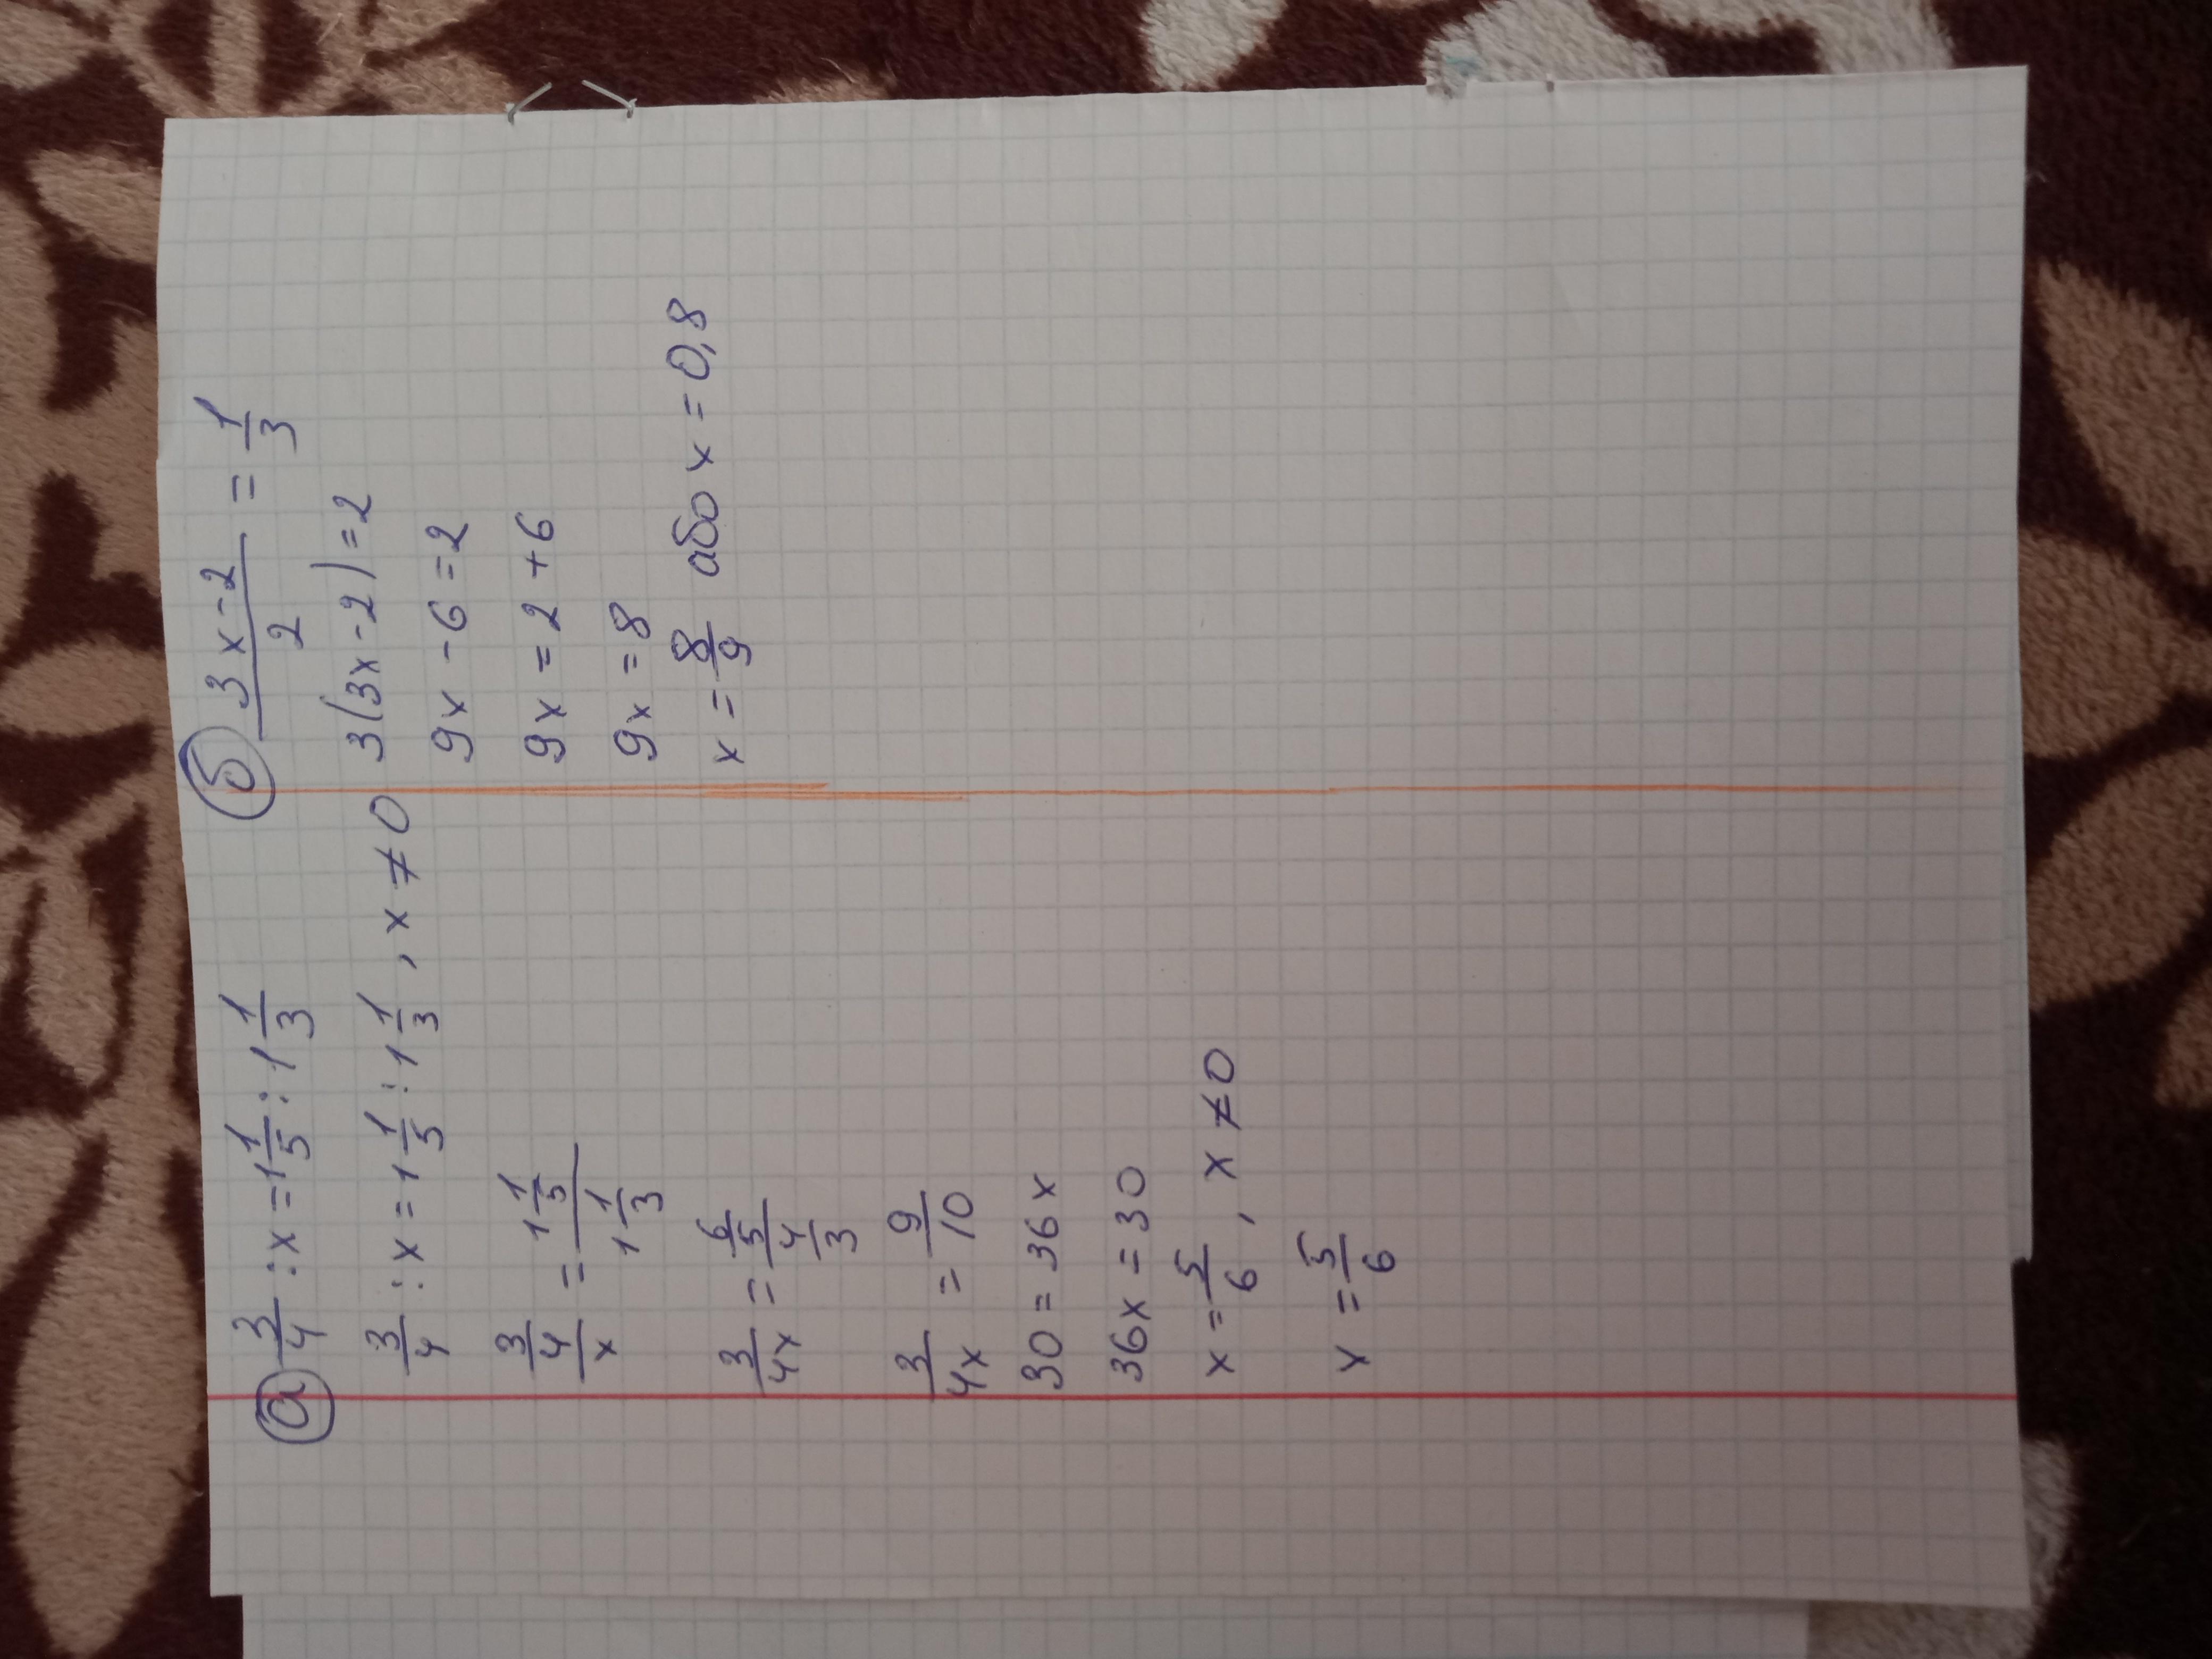 а) 3/4 : x = 1 1/5 : 1 1/3
3/4 : x = 1 1/5 : 1 1/3 , x ≠ 0
(3/4)/x = (1 1/5)/(1 1/3)
3/(4x) = (6/5)/(4/3)
3/(4x) = 9/10
30 = 36x
36x = 30
x = 5/6 , x ≠ 0
x = 5/6
б) (3x-2)/2 = 1/3
3(3x-2) = 2
9x - 6 = 2
9x = 2 + 6
9x = 8
x = 8/9 або x = 0,8